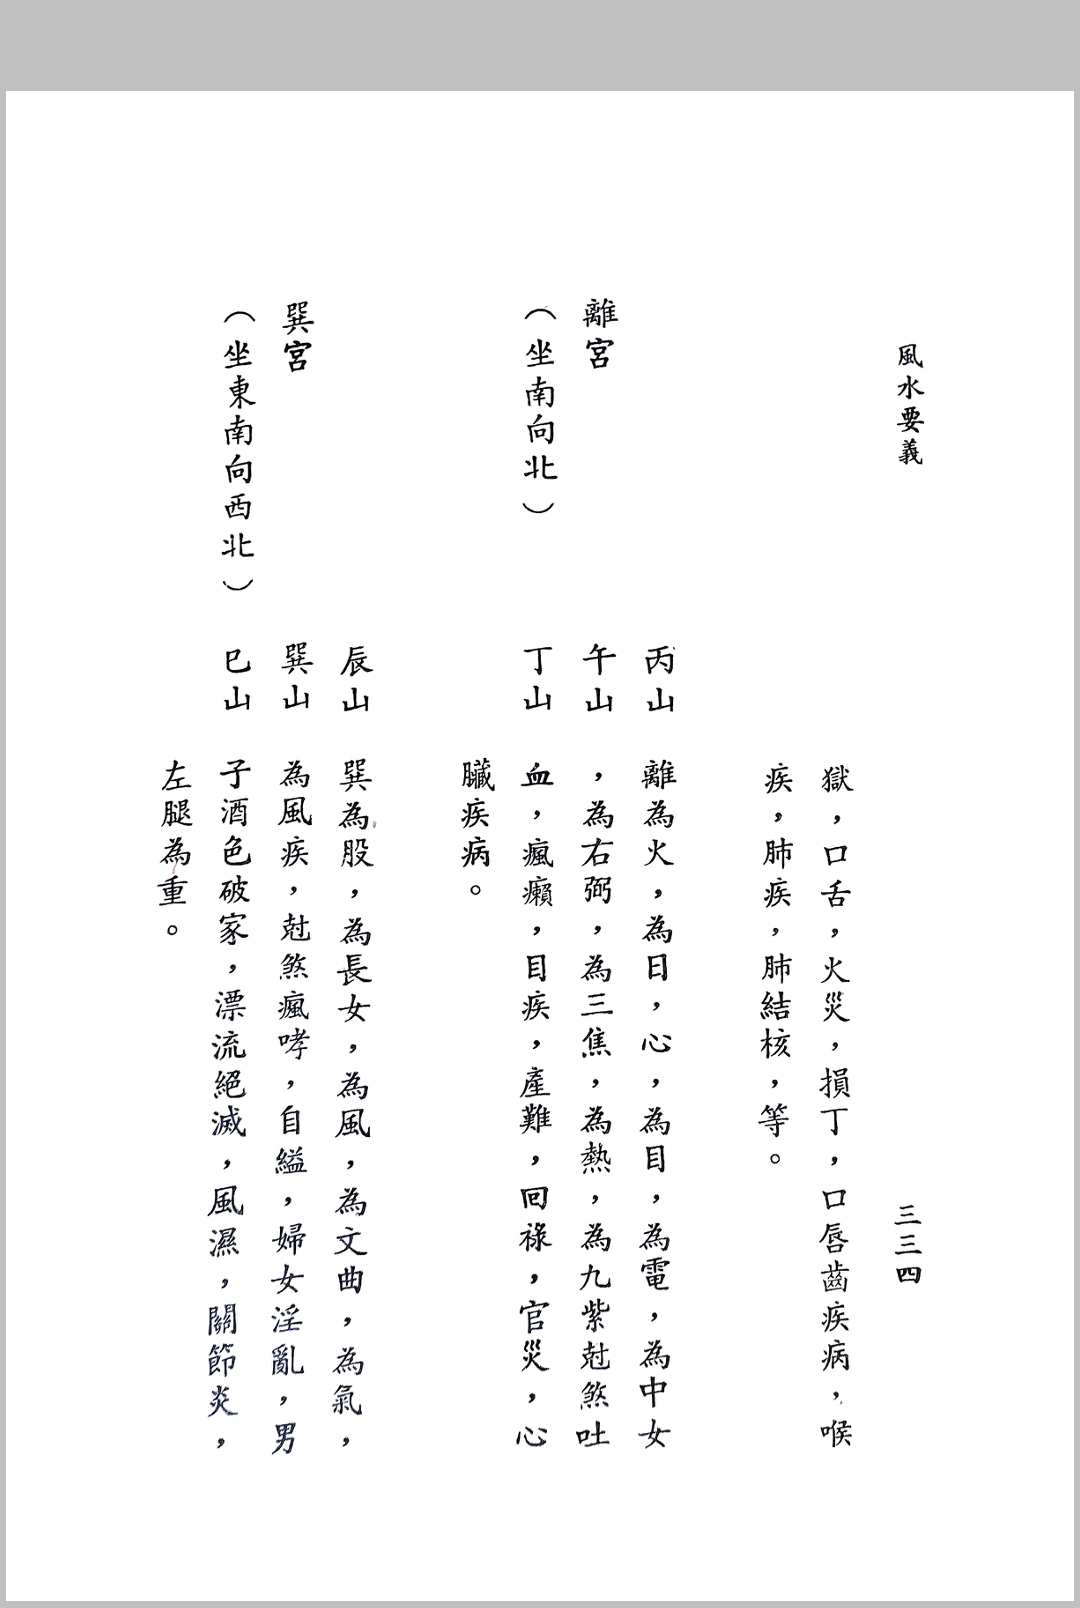 風水要義
三三四
獄，口舌，火災，損丁，口唇齒疾病，喉
疾，肺疾，肺結核，等。
離宮
（坐南向北）
丙山
午山
丁山
離為火，為日，心，為目，為電，為中女
，為右弼，為三焦，為熱，為九紫尅煞吐
血，瘋癩，目疾，產難，回祿，官災，心
臟疾病。
巽宮
（坐東南向西北）
辰山
巽山
巳山
巽為股，為長女，為風，為文曲，為氣，
為風疾，尅煞瘋哮，自縊，婦女淫亂，男
子酒色破家，漂流絕滅，風濕，關節炎，
左腿為重。